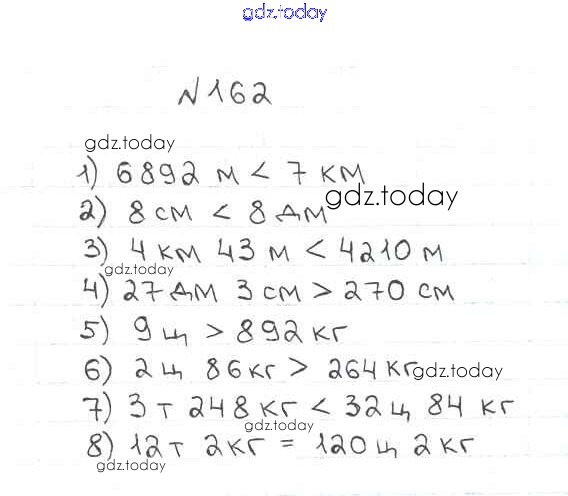 gdz.today
N 162
gdz.today
1) 6892 м < 7 км
gdz.today
2) 8 см < 8 дм
3) 4 км 43 м < 4210 м
gdz.today
4) 27 дм 3 см > 270 см
5) 9 ц > 892 кг
6) 2 ц 86 кг > 264 кг gdz.today
7) 3 т 248 кг < 32 ц 84 кг
8) 12 т 2 кг = 120 ц 2 кг
gdz.today